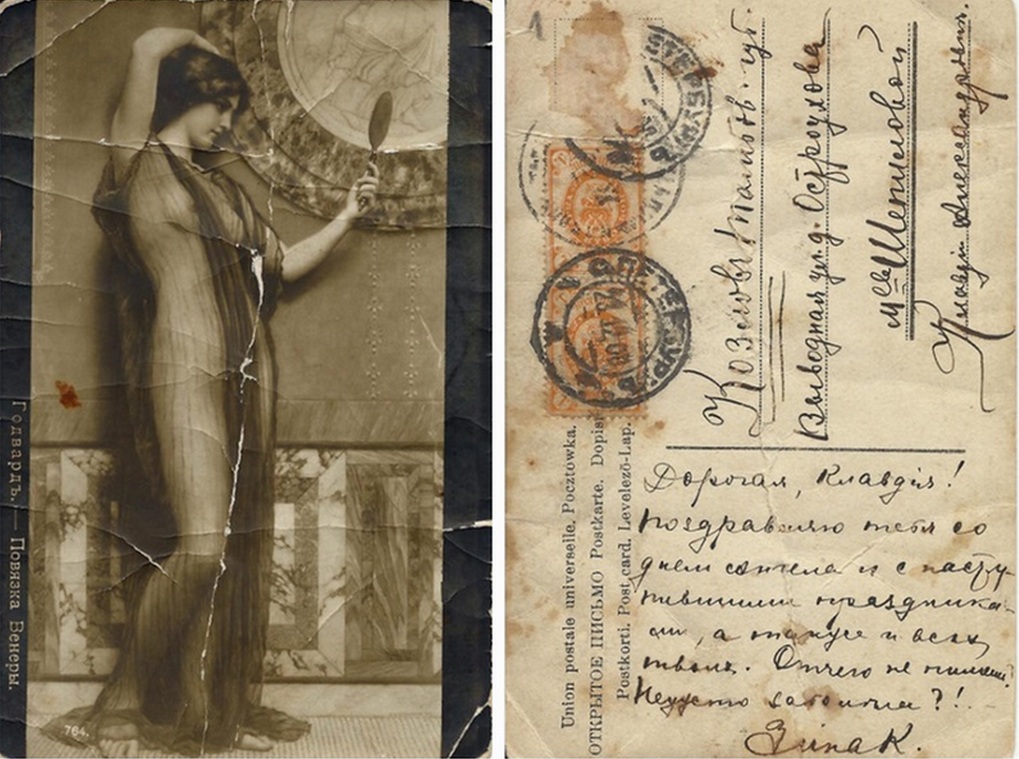 Годвардъ. — Повязка Венеры.
764.
1
Union postale universelle. Pocztowka.
ОТКРЫТОЕ ПИСЬМО Postkarte. Dopis
Postkorti. Post card. Levelező-Lap.
Козловъ, Тамбов. губ.
Выводная ул. д. Остроухова
M-lle Шепиловой
Клавдіи Александровнѣ.
Дорогая, Клавдія!
Поздравляю тебя со
днем ангела и с насту-
пившими праздника-
ми, а также и всех
твоих. Отчего не пишешь?
Неужто забыла?!
Зина К.